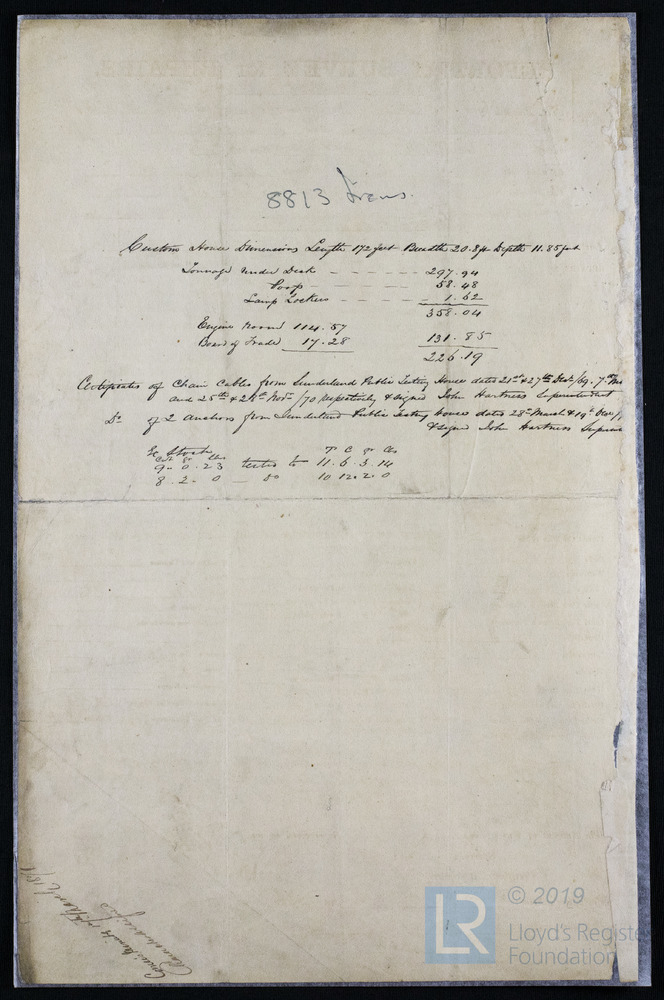 8813 Irons.
Custom House Dimensions Length 172 feet Breadth 20.8ft Depth 11.85 feet
Tonnage under Deck - - - - - 297.94
Poop - - - - 58.48
Lamp Lockers - - - 1.62
358.04
Engine Room 114.57
Board of Trade 17.28 131.85
226.19
Certificates of Chain Cables from Sunderland Public Testing House dated 21st & 27th Decr/69. 7th
and 25th & 28th Novr /70 respectively & signed John Hartness Superintendent
Do of 2 Anchors from Sunderland Public Testing House dated 28th March & 19th Decr/
& signed John Hartness
Ex Stock T C Qr lbs
Cwt Qr lbs
9 - 0. 23 tested to 11. 6. 3. 14
8. 2 - 0 — do 10 12. 2. 0
© 2019
LR
Lloyd's Register
Foundation